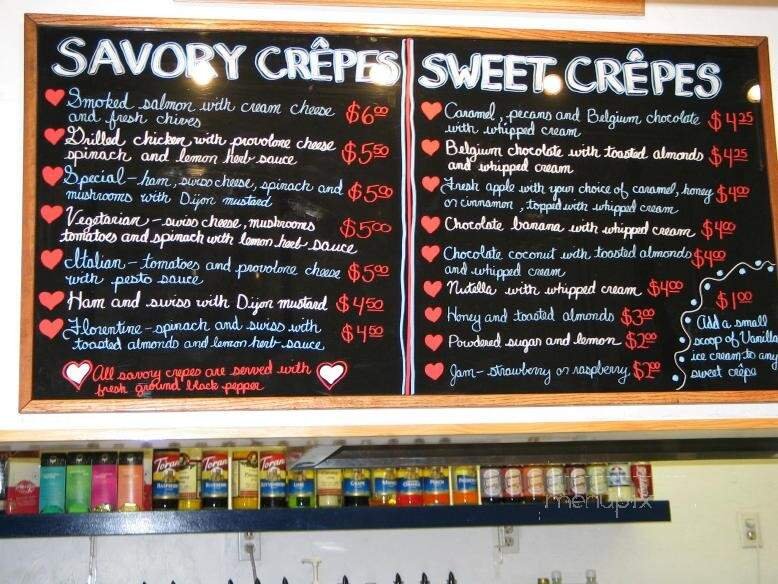 SAVORY CRÊPES
Smoked salmon with cream cheese
and fresh chives
$6.00
Grilled chicken with provolone cheese
spinach and lemon herb sauce
$5.50
Special - ham, swiss cheese, spinach and
mushrooms with Dijon mustard
$5.00
Vegetarian - swiss cheese, mushrooms
tomatoes and spinach with lemon herb sauce
$5.00
Italian - tomatoes and provolone cheese
with pesto sauce
$5.00
Ham and swiss with Dijon mustard $4.50
Florentine - spinach and swiss with
toasted almonds and lemon herb sauce
$4.50
All savory crepes are served with
fresh ground black pepper
SWEET CRÊPES
Caramel, pecans and Belgium chocolate
with whipped cream
$4.25
Belgium chocolate with toasted almonds
and whipped cream
$4.25
Fresh apple with your choice of caramel, honey
or cinnamon, topped with whipped cream
$4.00
Chocolate banana with whipped cream $4.00
Chocolate coconut with toasted almonds
and whipped cream
$4.00
Nutella with whipped cream $4.00
Honey and toasted almonds $3.00
Powdered sugar and lemon $2.00
Jam - strawberry or raspberry
$1.00
Add a small
scoop of Vanilla
ice cream to any
sweet crêpe
Torani
Torani
Torani
menupix